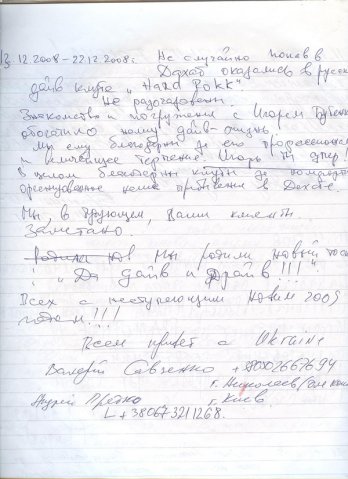 13.12.2008-22.12.2008г. Не случайно попав в
Дахаб оказались в русском
дайв клубе "Hard Rokk".
Не разочарованы.
Знакомство и погружения с Игорем
обогатило нашу дайв-жизнь.
Мы ему благодарны за его профессионализм
и терпение. Игорь ты супер!
В целом благодарны клубу за
организованное наше пребывание в Дахабе.
Мы, в будущем, Ваши клиенты.
Заметано.
Мы родили новый тост
! "Да дайв и драйв!!!"
Всех с наступающим новим 2009
годом!!!
Всем привет с Ukraine
Валерий Савченко
г. Николаев
Андрей г. Киев.
+380673211268.